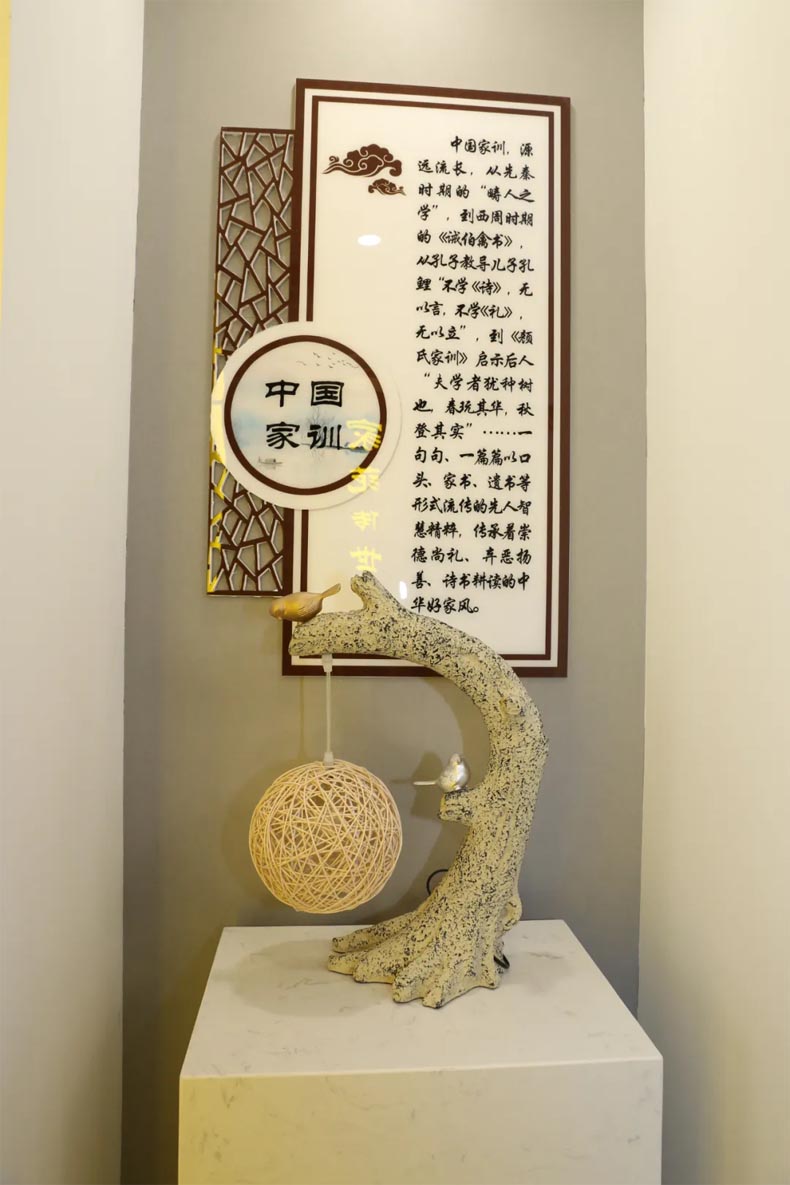 中国家训，源
远流长，从先秦
时期的“畴人之
学”，到西周时期
的《诫伯禽书》，
从孔子教导儿子孔
鲤“不学《诗》，无
以言，不学《礼》，
无以立”，到《颜
氏家训》启示后人
“夫学者犹种树
也，春玩其华，秋
登其实”……一
句句、一篇篇以口
头、家书、遗书等
形式流传的先人智
慧精粹，传承着崇
德尚礼、弃恶扬
善、诗书耕读的中
华好家风。
中国
家训